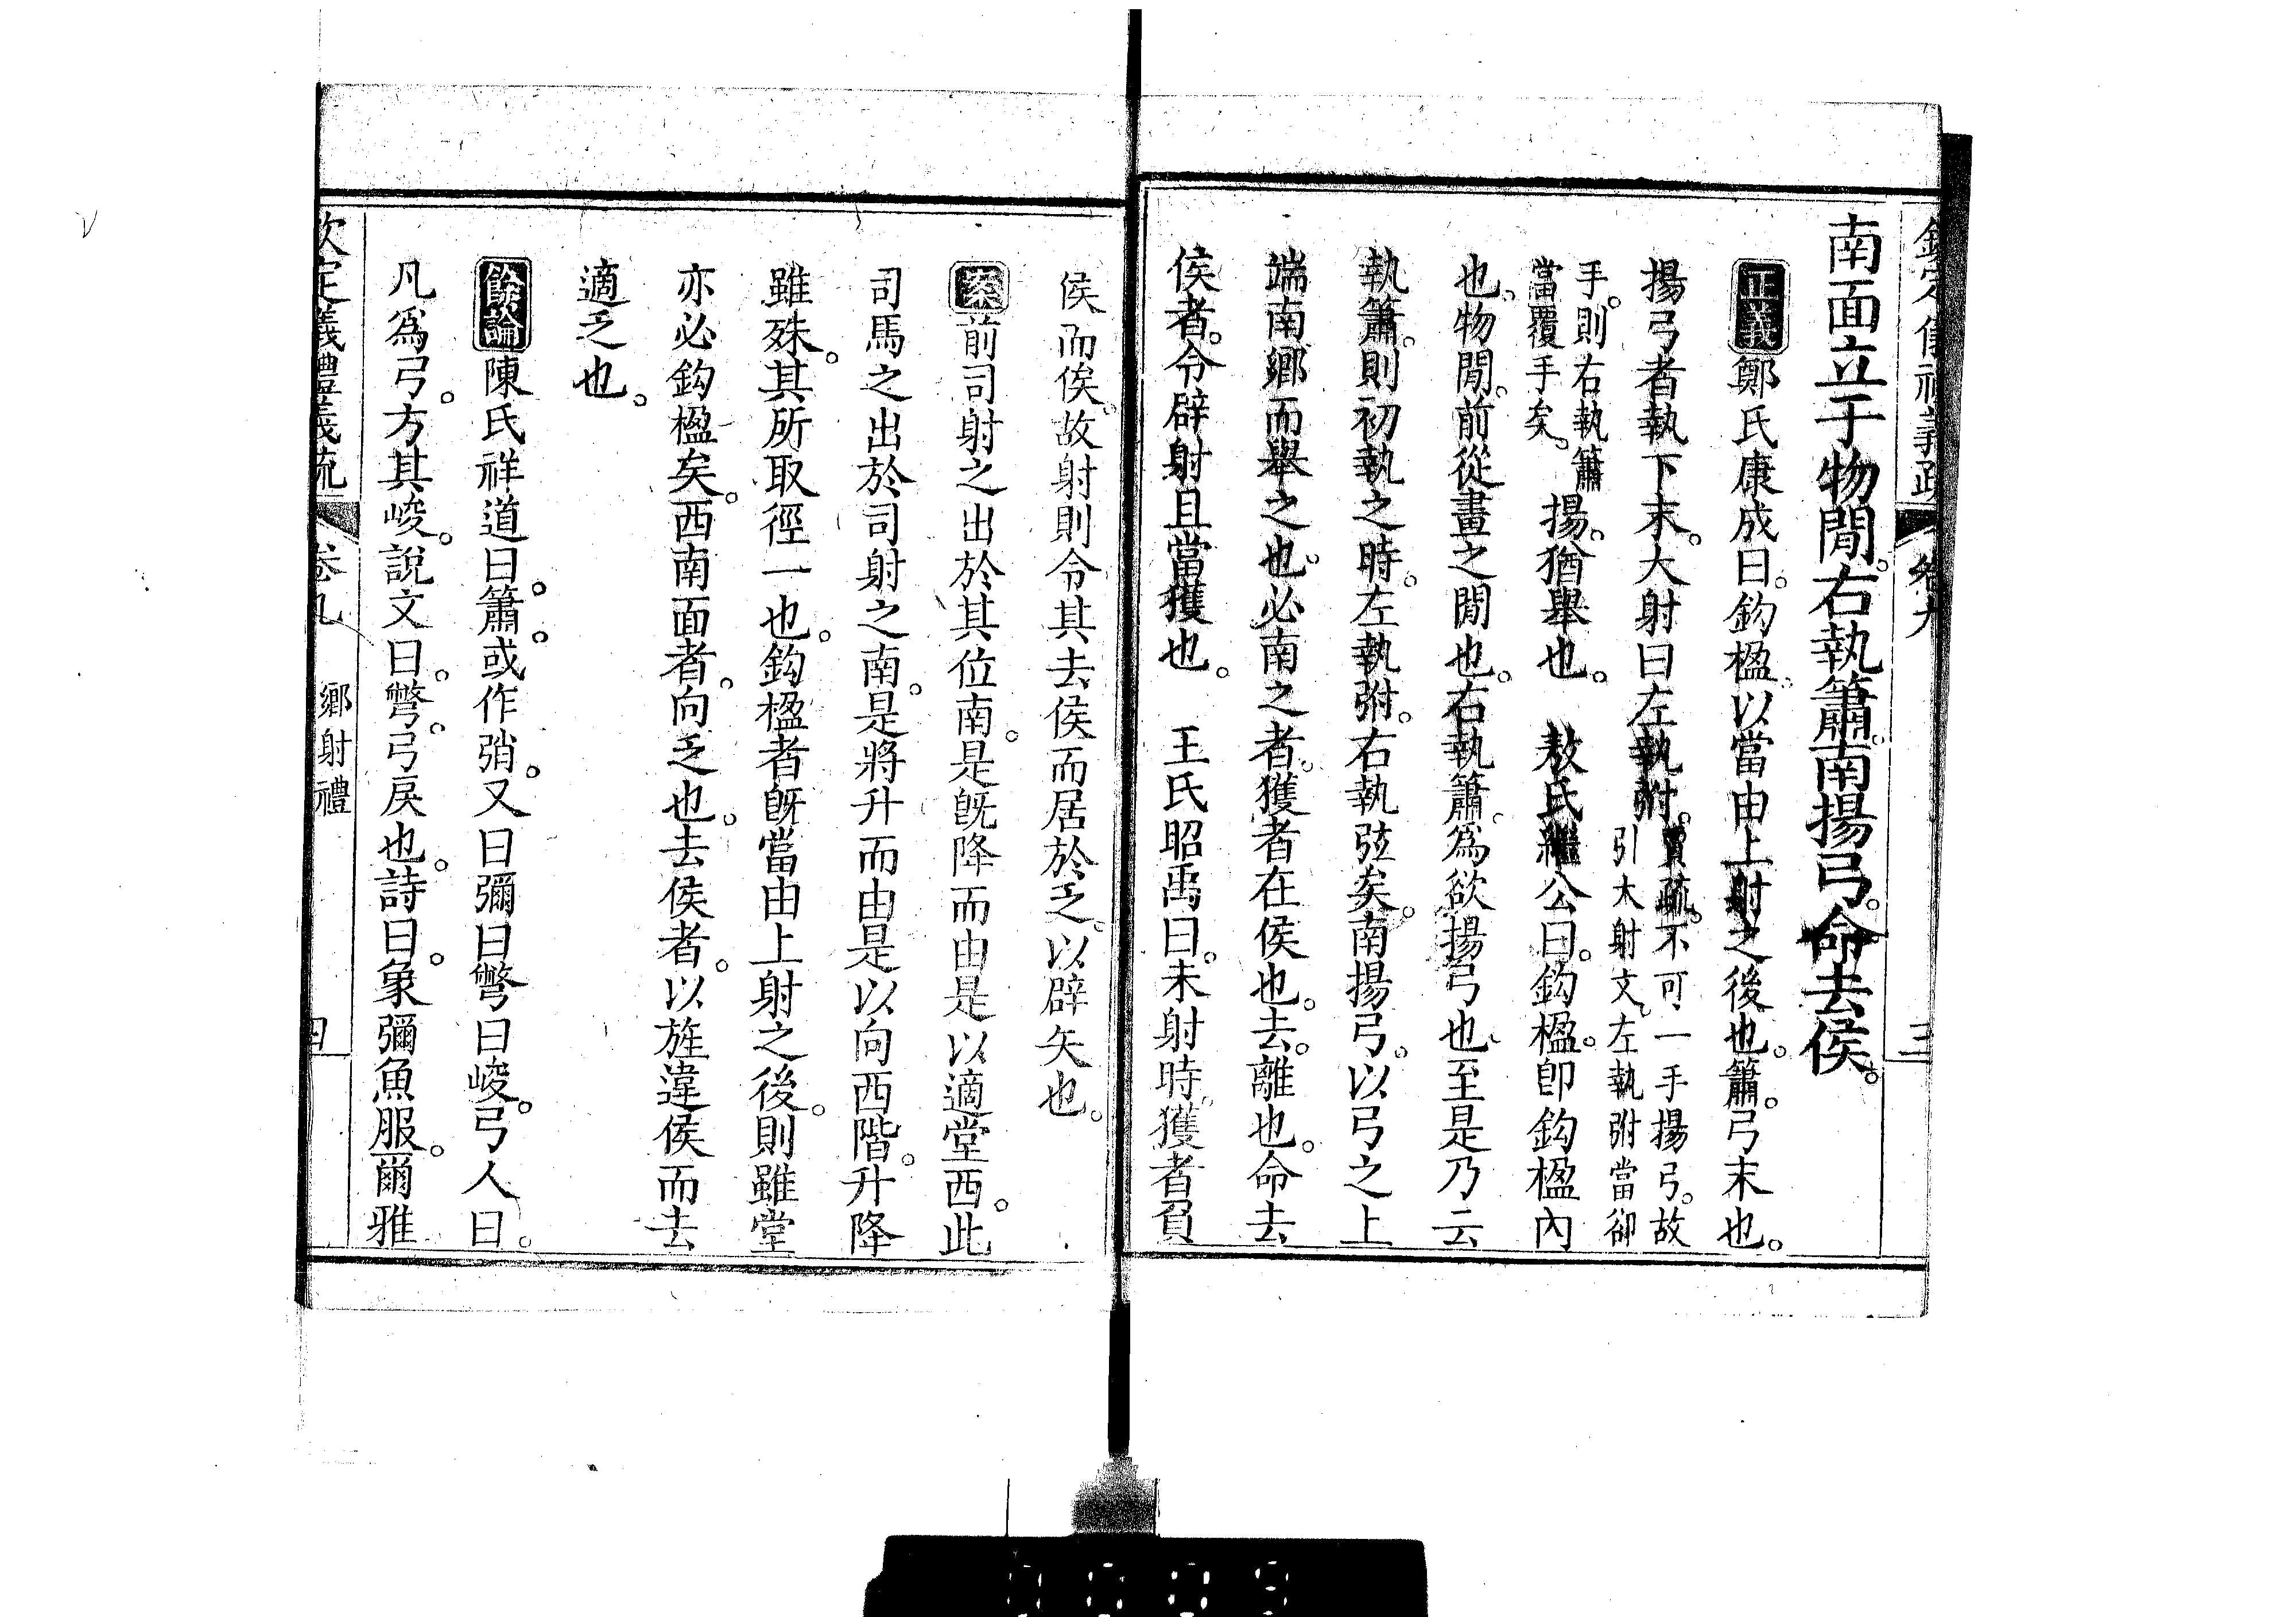 欽定儀禮義疏　卷九　三
南面立于物閒。右執簫。南揚弓。命去侯。
正義鄭氏康成曰。鉤楹。以當由上射之後也。簫。弓末也。
揚弓者執下末。大射曰左執弣。賈疏。不可一手揚弓。故
引大射文。左執弣當卻
手。則右執簫
當覆手矣。揚。猶舉也。　敖氏繼公曰。鉤楹。卽鉤楹內
也。物閒。前從畫之閒也。右執簫。爲欲揚弓也。至是乃云
執簫。則初執之時。左執弣。右執弦矣。南揚弓。以弓之上
端南鄉而舉之也。必南之者。獲者在侯也。去。離也。命去
侯者。令辟射且當獲也。　王氏昭禹曰。未射時。獲者負
侯而俟。故射則令其去侯而居於乏。以辟矢也。
案前司射之出於其位南。是旣降而由是以適堂西。此
司馬之出於司射之南。是將升而由是以向西階。升降
雖殊。其所取徑一也。鉤楹者旣當由上射之後。則雖堂
亦必鉤楹矣。西南面者。向乏也。去侯者。以旌違侯而去
適乏也。
餘論陳氏祥道曰。簫。或作弰。又曰彌曰彆曰峻。弓人曰。
凡爲弓。方其峻。說文曰。彆。弓戾也。詩曰。象彌魚服。爾雅
欽定儀禮義疏　卷九　鄉射禮　四